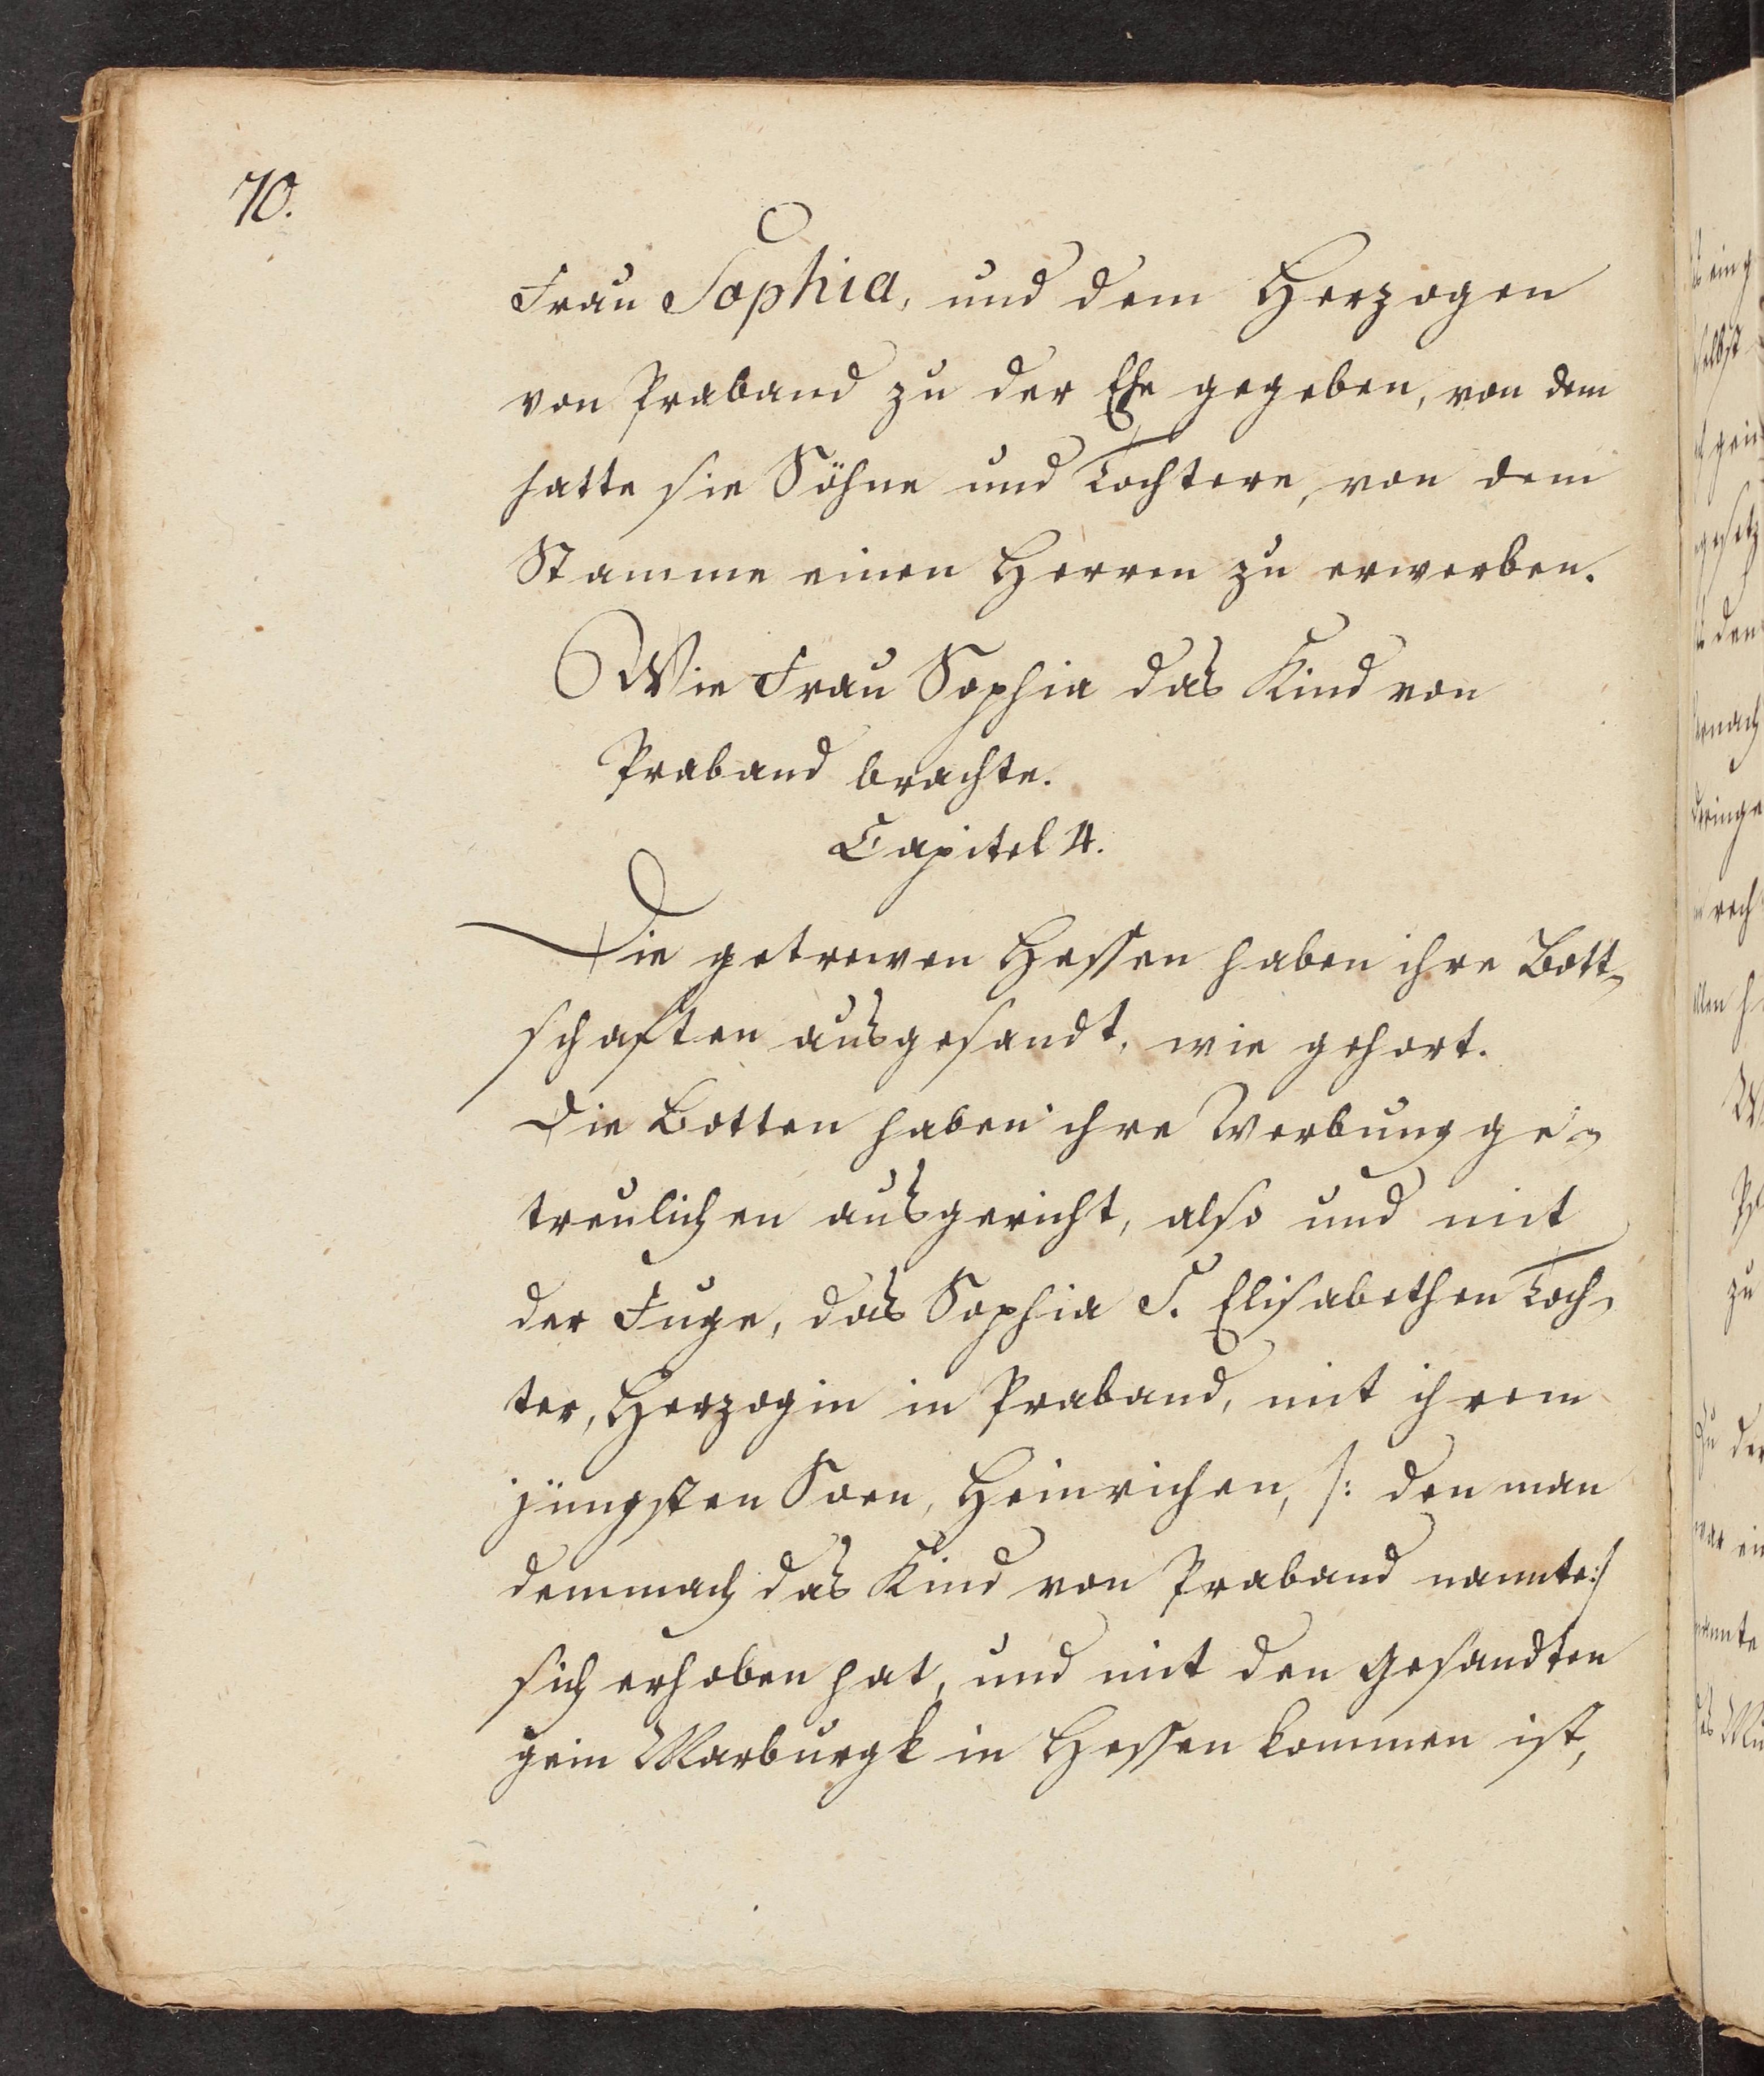 70.
Frau Sophia, und dem Herzogen
von Praband zu der Ehe gegeben, von dem
hatte sie Söhne und Tochtere, von dem
Stamme einen Herren zu erwerben.
Wie Frau Sophia das Kind von
Praband brachte.
Capitel 4.
Die getrewen Hessen haben ihre Bott-
schaften ausgesandt, wie gehort.
Die Botten haben ihre Werbung ge-
treulichen ausgericht, also und mit
der Fuge, das Sophia S. Elisabethen Toch-
ter, Herzogin in Praband, mit ihrem
jüngsten Soen, Heinrichen, /: den man
demnach das Kind von Praband nannte:/
sich erhoben hat, und mit den Gesandten
gein Marburgk in Hessen kommen ist,